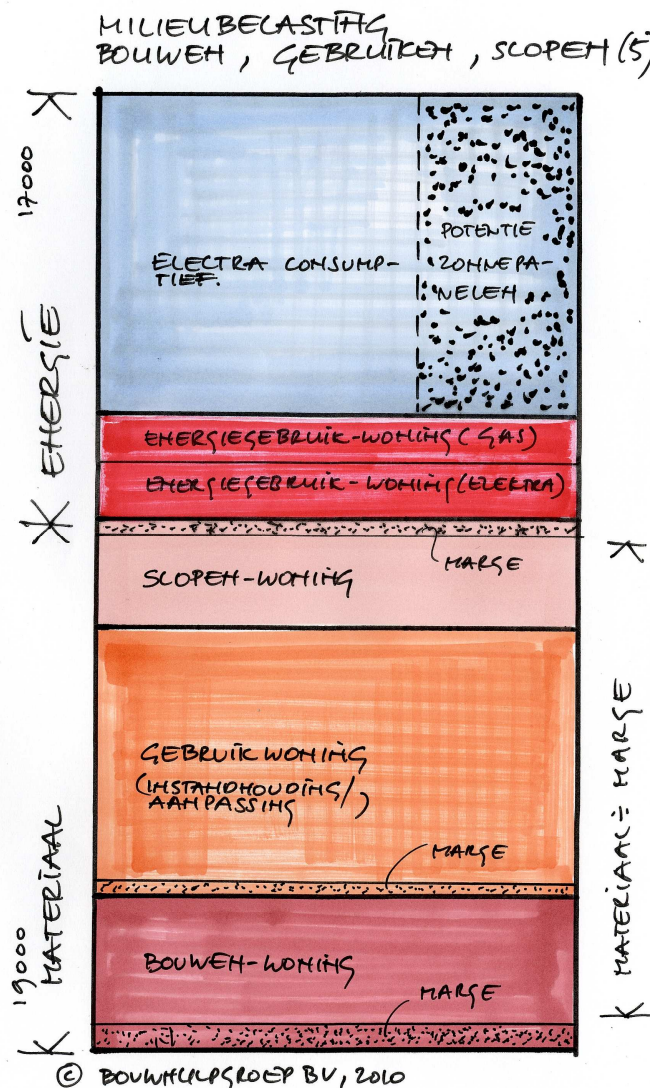 MILIEUBELASTING
BOUWEN, GEBRUIKEN, SLOPEN (5)
17000
ENERGIE
ELECTRA CONSUMP-
TIEF.
POTENTIE
ZONNEPA-
NELEN
ENERGIEGEBRUIK-WONING (GAS)
ENERGIEGEBRUIK-WONING (ELEKTRA)
MARGE
SLOPEN-WONING
GEBRUIK WONING
(INSTANDHOUDING/
AANPASSING)
MARGE
BOUWEN-WONING
MARGE
19000
MATERIAAL
MATERIAAL÷MARGE
© BOUWHULPGROEP BV, 2010